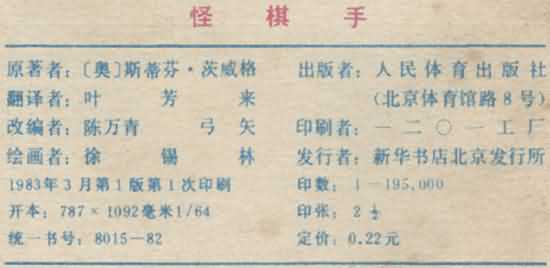 怪棋手
原著者：〔奥〕斯蒂芬·茨威格
翻译者：叶芳来
改编者：陈万青 弓矢
绘画者：徐锡林
1983年3月第1版第1次印刷
开本：787×1092毫米1/64
统一书号：8015—82
出版者：人民体育出版社
（北京体育馆路8号）
印刷者：一二〇一工厂
发行者：新华书店北京发行所
印数：1—195,000
印张：2 1/2
定价：0.22元